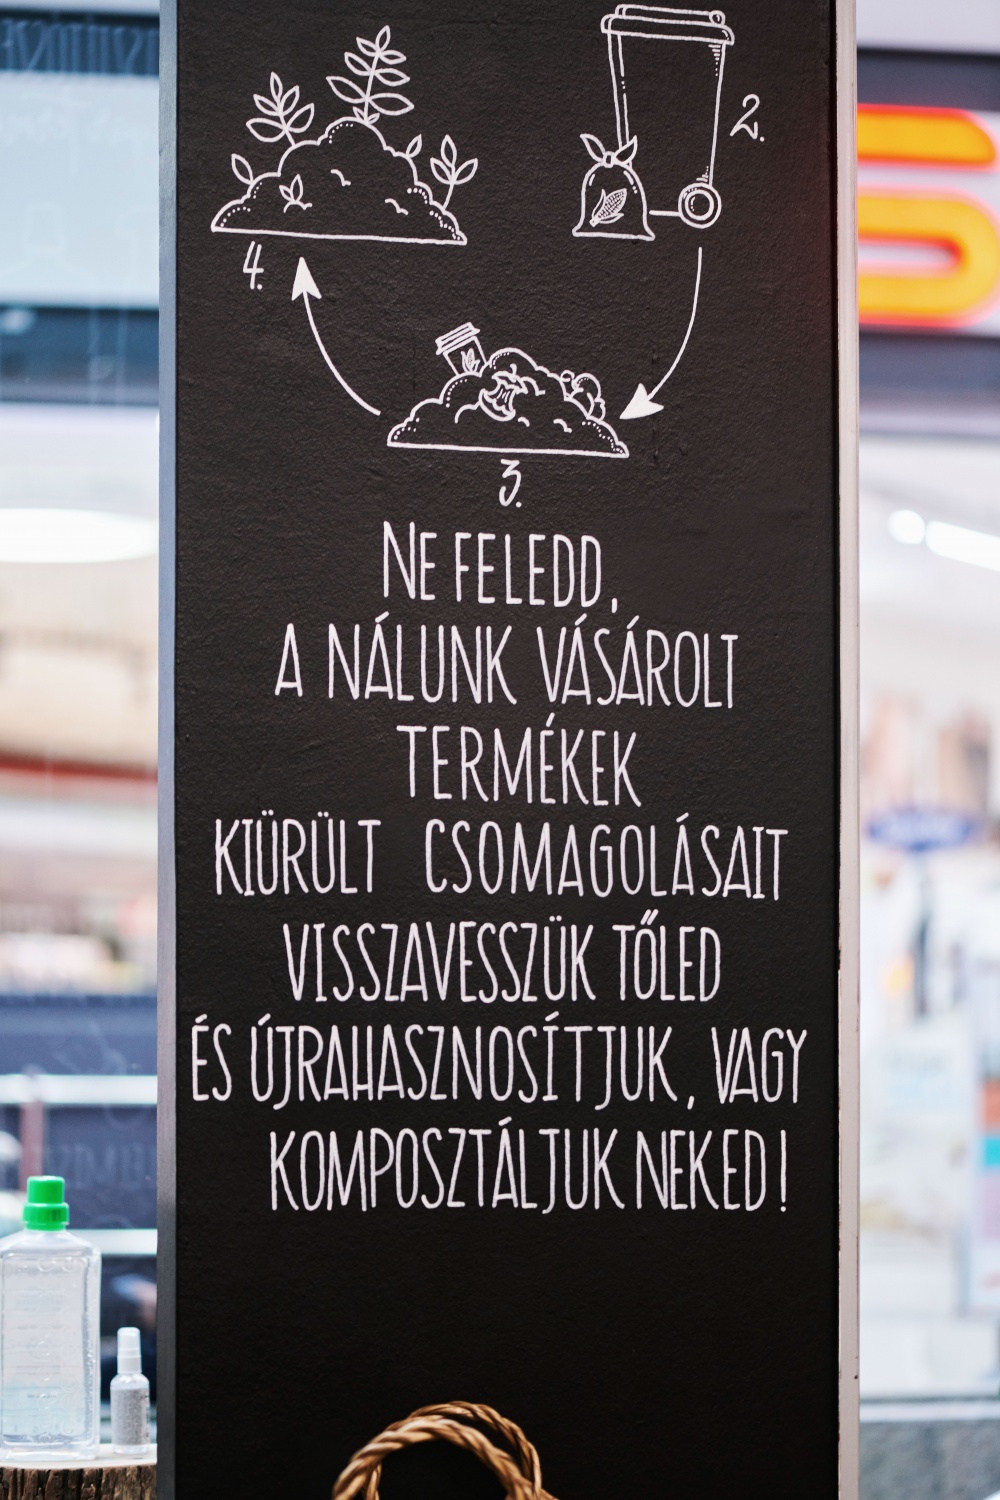 2.
4.
3.
NE FELEDD,
A NÁLUNK VÁSÁROLT
TERMÉKEK
KIÜRÜLT CSOMAGOLÁSAIT
VISSZAVESSZÜK TŐLED
ÉS ÚJRAHASZNOSÍTJUK, VAGY
KOMPOSZTÁLJUK NEKED!